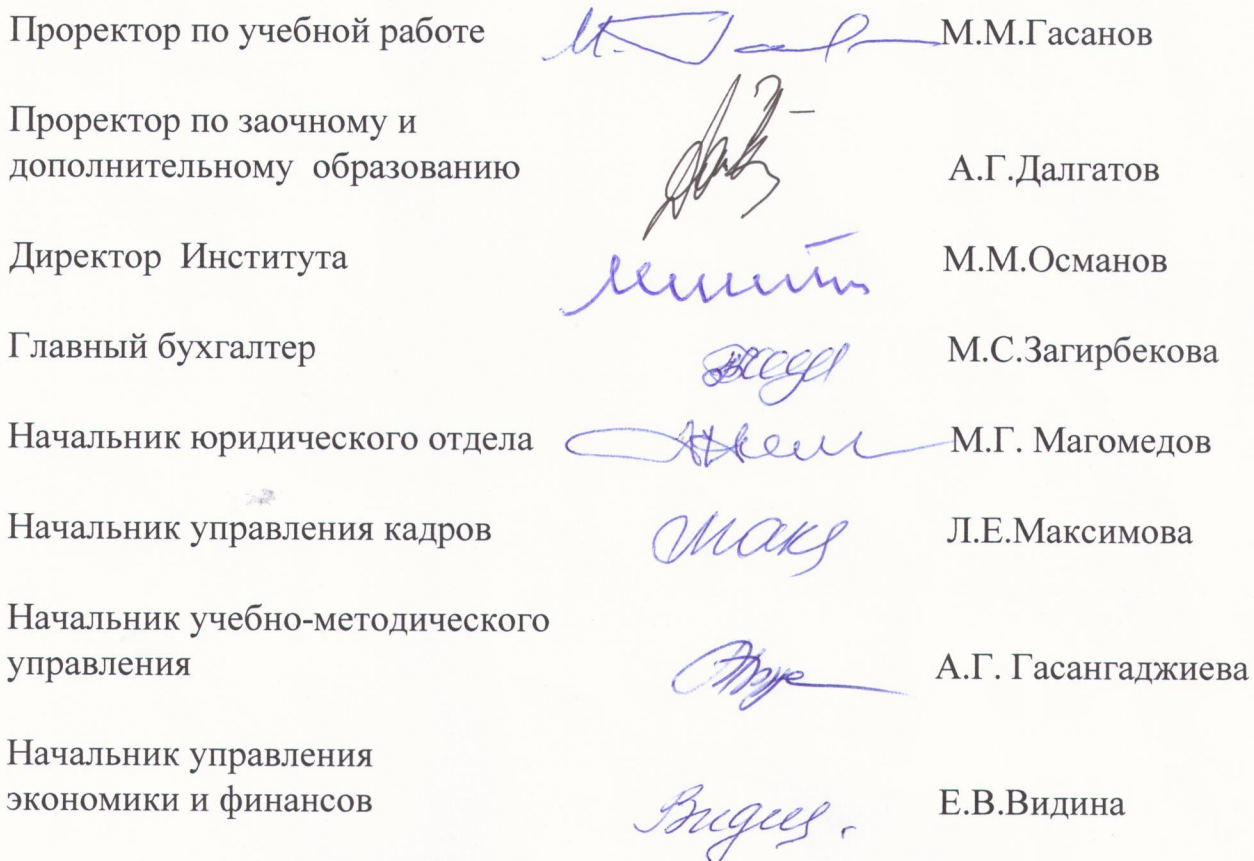 Проректор по учебной работе М.М.Гасанов
Проректор по заочному и
дополнительному образованию А.Г.Далгатов
Директор Института М.М.Османов
Главный бухгалтер М.С.Загирбекова
Начальник юридического отдела М.Г. Магомедов
Начальник управления кадров Л.Е.Максимова
Начальник учебно-методического
управления А.Г. Гасангаджиева
Начальник управления
экономики и финансов Е.В.Видина